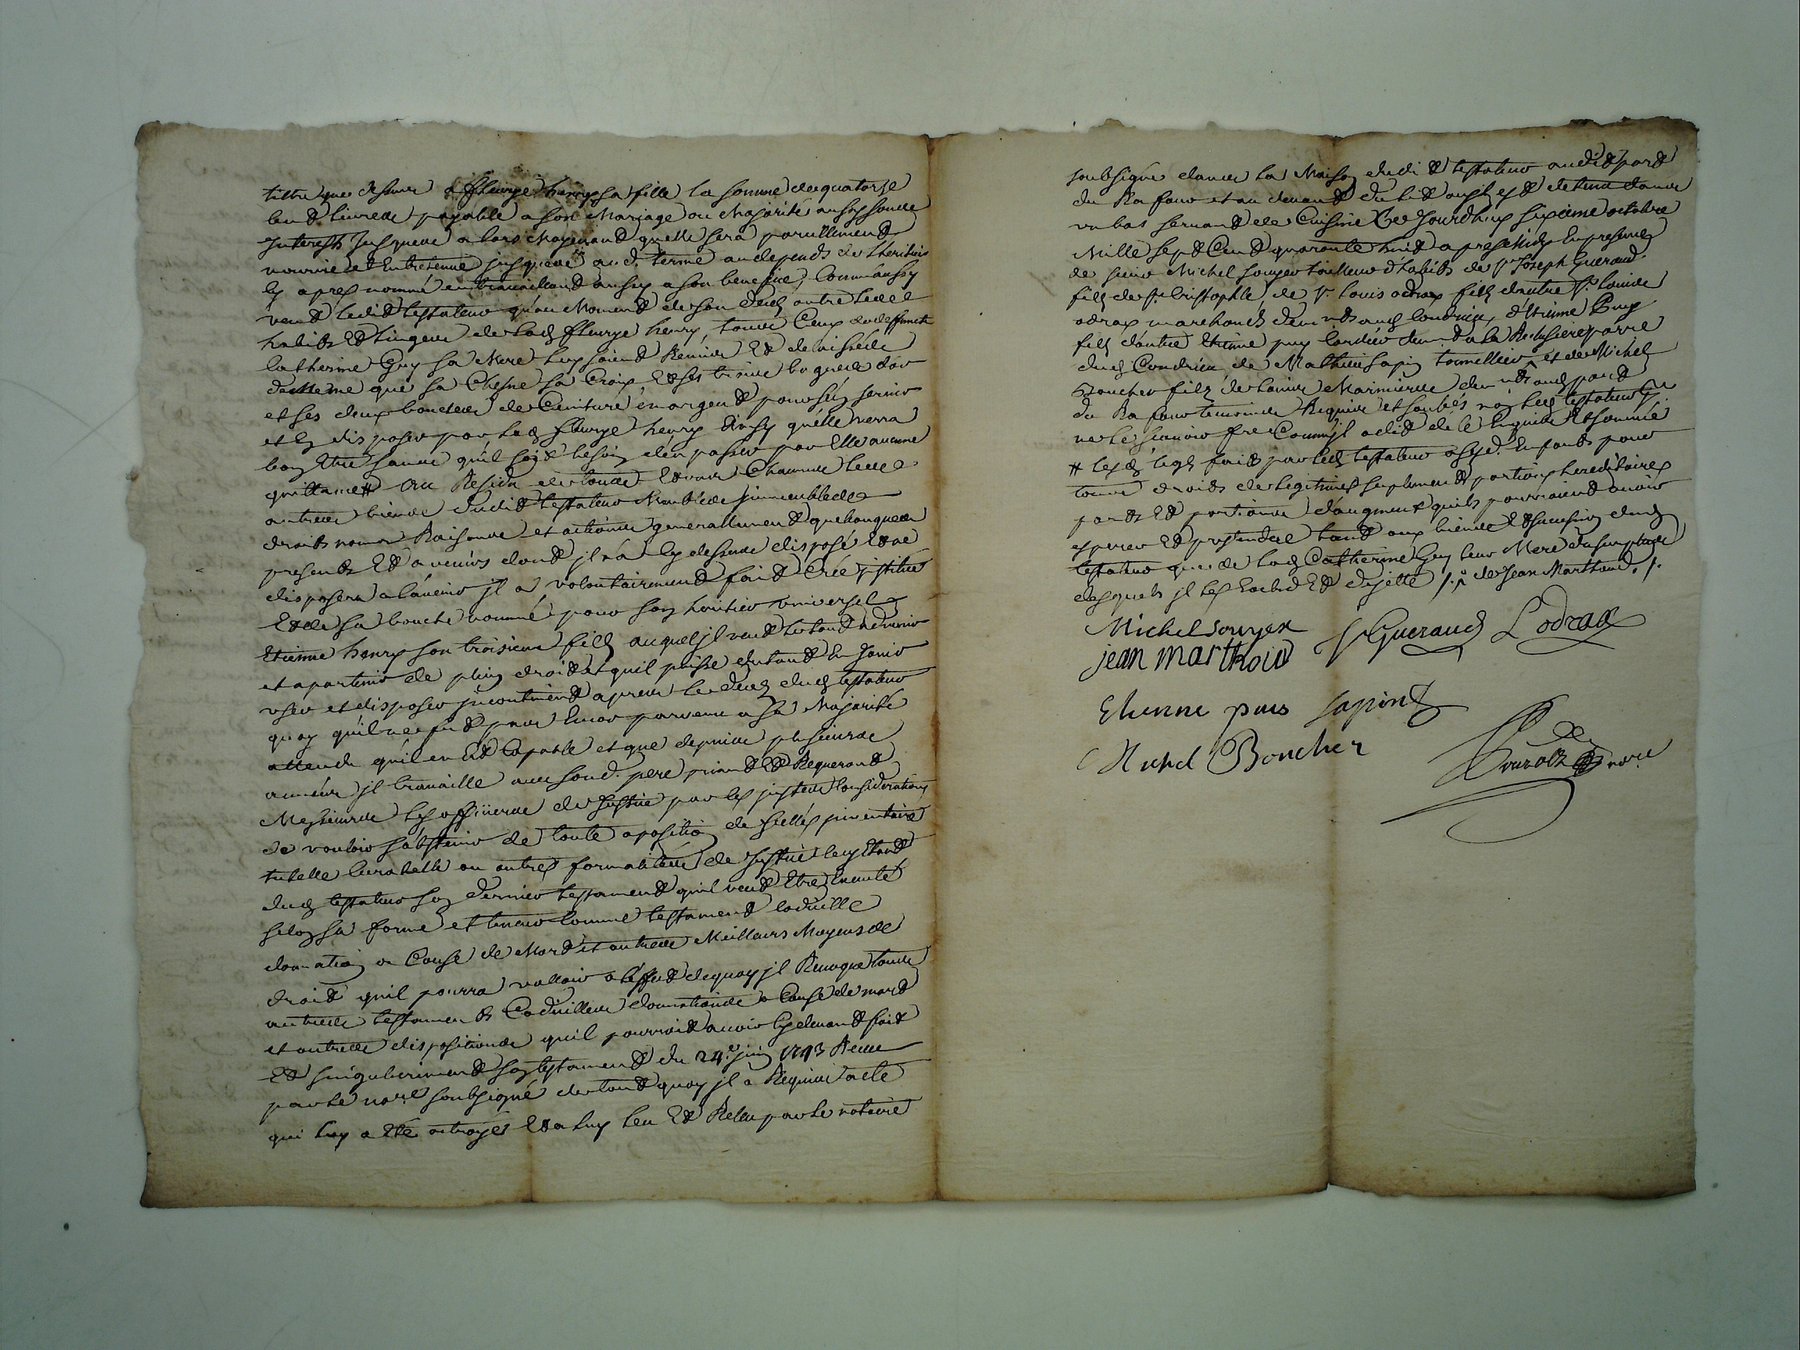 tiltre que dessus a fleurye henry sa fille la somme de quatorze
Cent livres payable a son Mariage ou Majorité aussy sans
Interests Jusques alors moyenand quelle sera pareillement
nourrie et Entretenue jusques aud. terme aux depends de lheritier
cy apres nommé en travailland aussy a son benefice, Comm' aussy
veud ledit testateur qu'au Moment de son deces outre les
habits Et linges de lad. fleurye henry, tous Ceux de deffuncte
Catherine Guy sa Mere luy soient Remis Et delaissés
de Meme que sa Chesne sa Croix, Et ses trois bagues d'or
et ses deux boucles de Ceinture en argend pour s'en servir
et En disposer par lad. fleurye henry Ainsy qu'elle verra
bon Etre sans qu'il soit besoin d'en passer par Elle aucune
quittance # Au Residu de tous Et uns Chacuns les
autres biens dudit testateur Meubles immeubles
droits noms Raisons et actions generallement quelconques
presents Et avenirs dond jl n'a cy dessus disposé Et ne
disposera a l'avenir jl a volontairement fait Créé jnstitué
Et de sa bouche nommé pour son heritier universel
Etienne henry son troisieme fils auquel jl veud le tout advenir
et apartenir de plein droit et quil puisse du tout En Jouir
user et disposer jncontinend apres le deces dud. testateur
quoy qu'il ne fut pas Encor parvenu a sa Majorité
attendu qu'il en Est Capable et que depuis plusieurs
années jl travaille avec sond. pere priant Et Requerand
Messieurs les officiers de Justice par les justes Considerations
de vouloir s'abstenir de toute aposition de scellés jnventaire
tutelle Curatelle ou autres formalités de Justice cecy Etant
dud. testateur son dernier testament qu'il veud Etre Executé
selon sa forme et teneur Comme testament codicille
donation a Cause de Mort et autres Meilleurs Moyens de
droit qu'il pourra valloir a l'effet dequoy jl Revoque tous
autres testaments Codicilles donations a Cause de mort
et autres dispositions qu'il pourroit avoir Cy devant fait
Et singulierement son testament du 24.e juin 1743 Receu
par le nore. soubsigné de tout quoy jl a Requis acte
qui luy a Eté octroyé Et a luy leu Et Releu par le notaire
soubsigné dans la Maison dudit testateur audit port
du
un bas servand de Cuisine Ce Jourdhuy sixieme octobre
Mille Sept Cend quarante huit apres Midy En presence
de sieur Michel Souyer tailleur d'habits de Sr. Joseph Gueraud
fils de Sr. Cristophle, de Sr. Louis odrax fils d'autre Sr. Louis
odrax marchands dem.nts aud. Condrieu, d'Etienne Puy
fils d'autre Etienne puy Cordier dem.t a la
dud. Condrieu de Mathieu Sapin tonnellier et de Michel
Boucher fils de Marinier dem.nts aud. port
du temoins Requis et soubsignés non led. testateur
ne le scavoir fre Comm'jl a dit de ce Enquis Et sommé
# lesd. legs faits par led. testateur asesd. Enfants pour
tous droits de legitimes suplements portions hereditaires
parts Et portions d'augment quils pourroient avoir
esperer Et pretendre tant aux biens Et succession dud.
testateur que de lad. Catherine Guy leur Mere au surplus
desquels jl les Exclud Et dejette /. & de Jean Marthoud ./.
Michel Souyer J Gueraud Lodrax
jean marthoud
Etienne puis Sapin
Michel Boucher
nore.